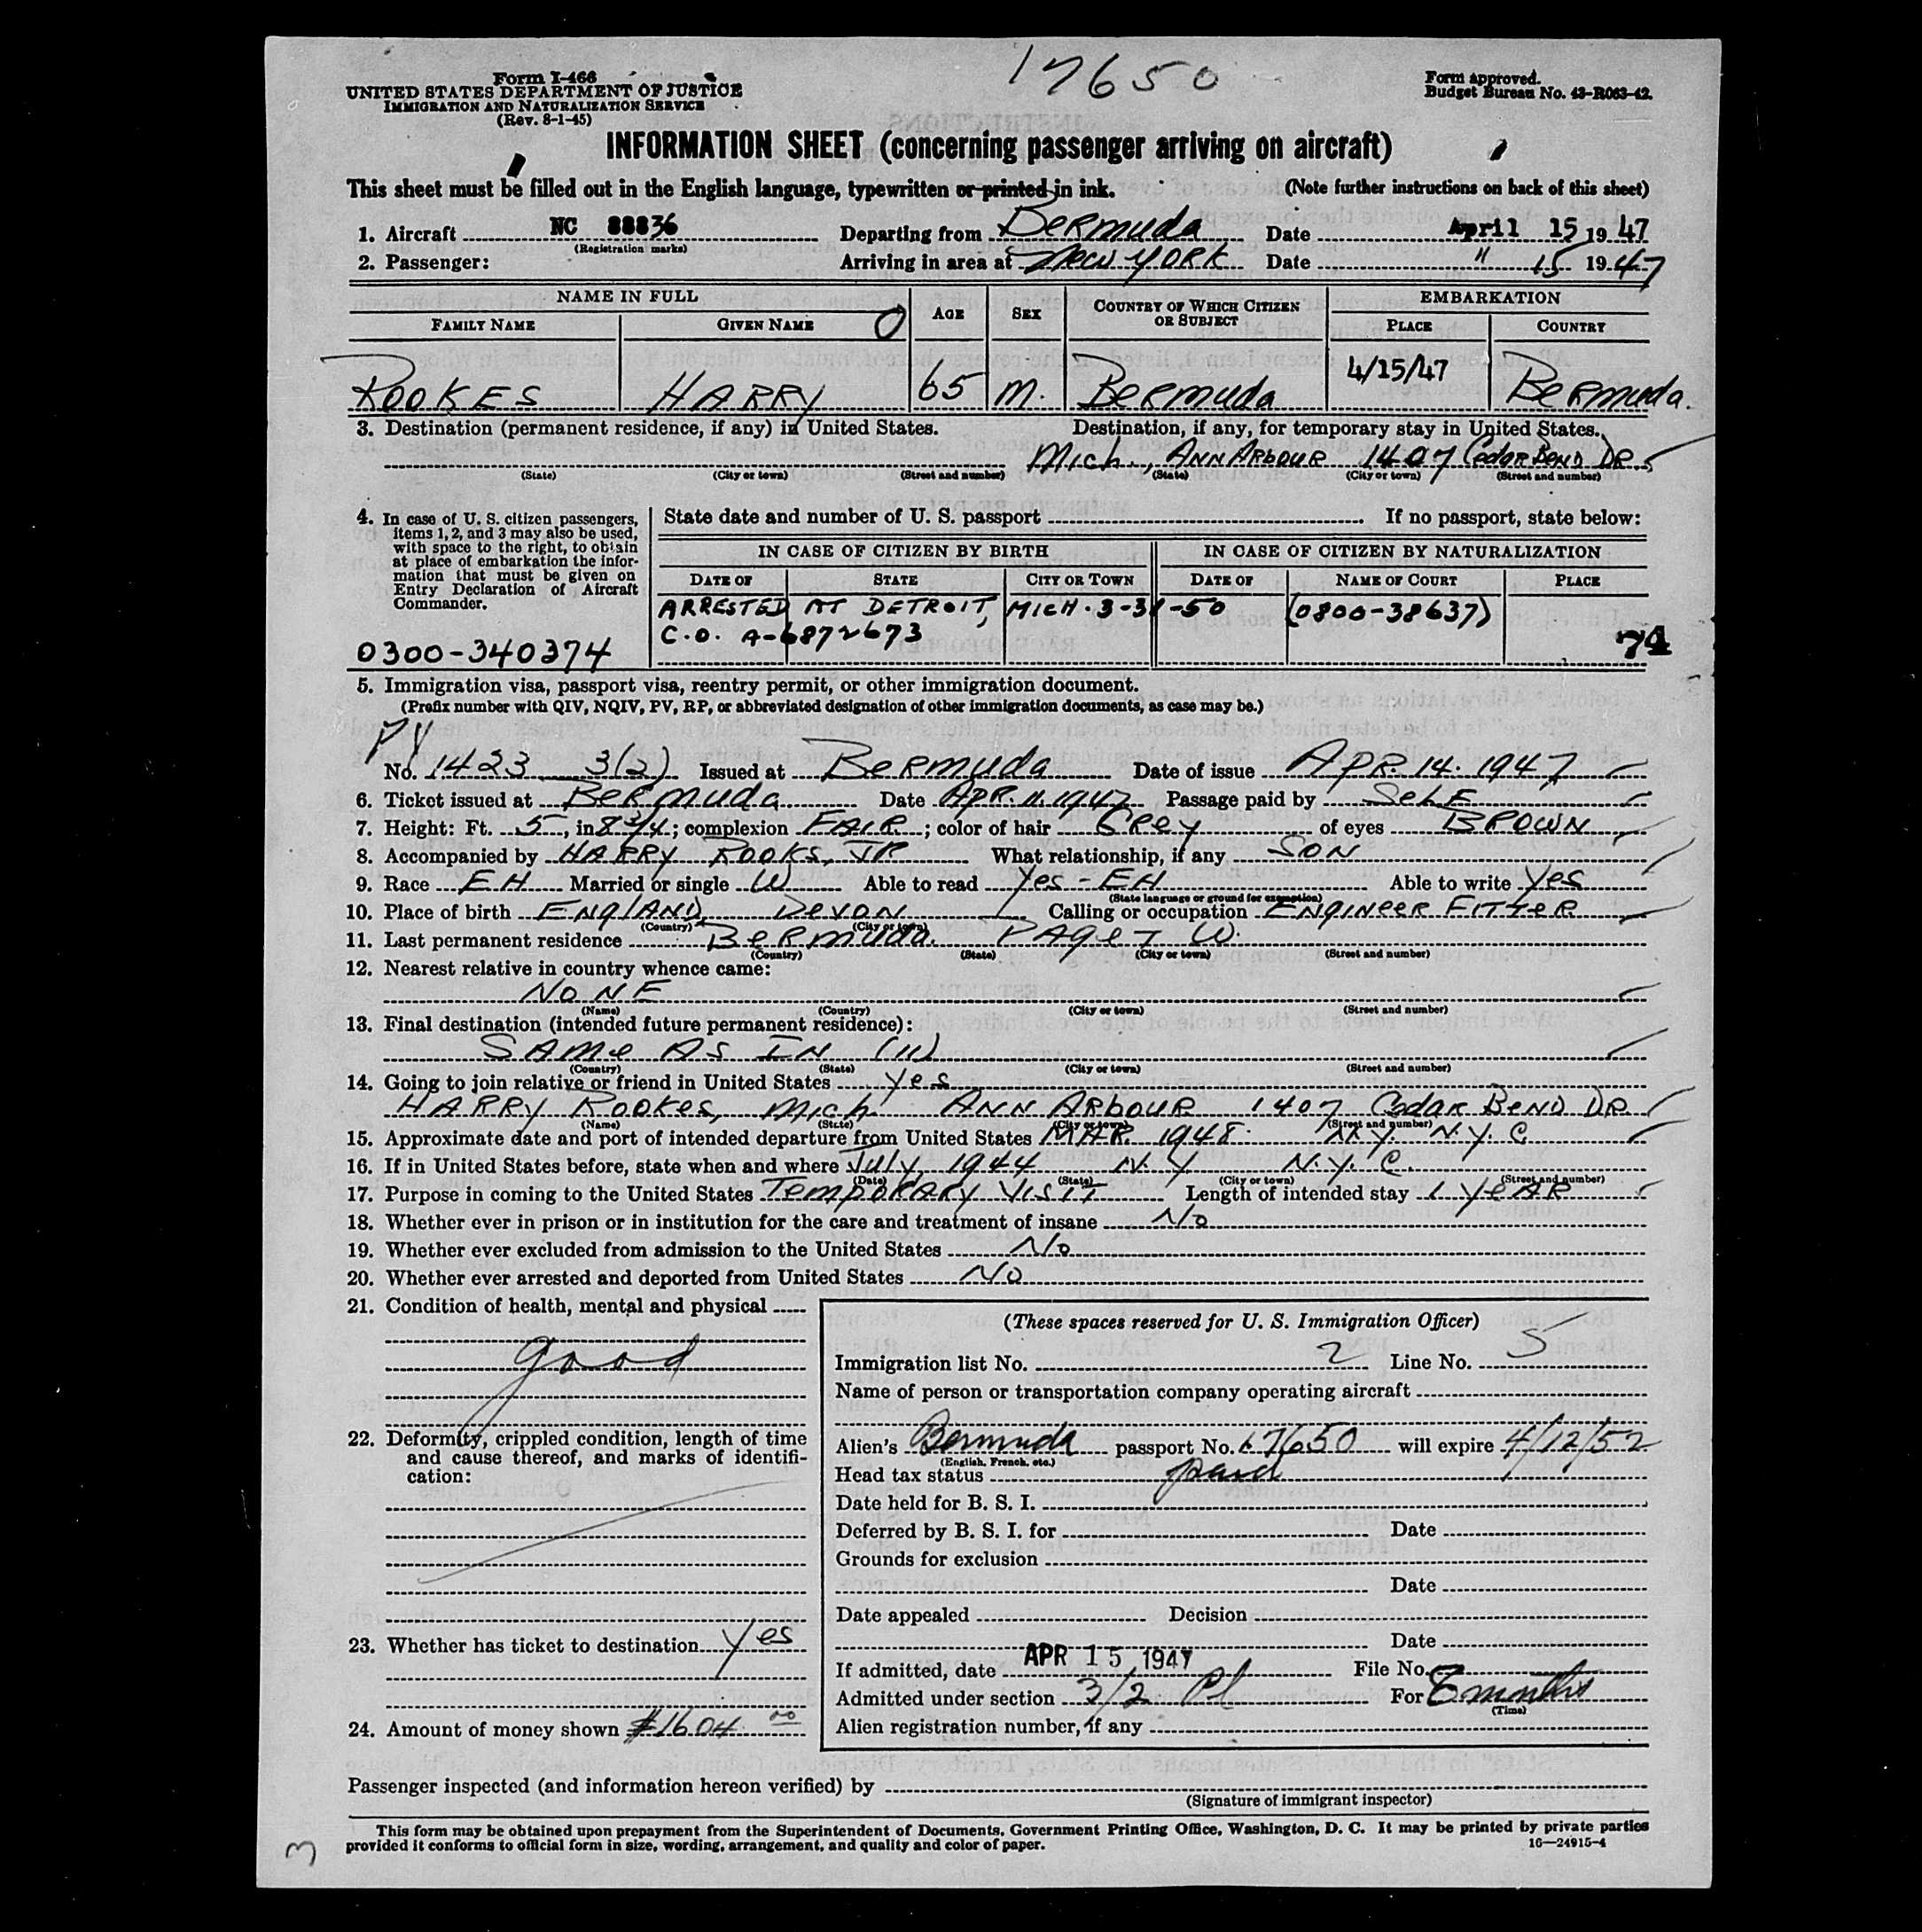 17650
Form I-466
UNITED STATES DEPARTMENT OF JUSTICE
IMMIGRATION AND NATURALIZATION SERVICE
(Rev. 8-1-45)
Form approved.
Budget Bureau No. 43-R063-42.
INFORMATION SHEET (concerning passenger arriving on aircraft)
This sheet must be filled out in the English language, typewritten or printed in ink. (Note further instructions on back of this sheet)
1. Aircraft NC 88836 Departing from Bermuda Date April 15 1947
(Registration marks)
2. Passenger: Arriving in area at New York Date " 15 1947
NAME IN FULL AGE SEX COUNTRY OF WHICH CITIZEN OR SUBJECT EMBARKATION
FAMILY NAME GIVEN NAME O PLACE COUNTRY
ROOKES HARRY 65 M. Bermuda 4/15/47 Bermuda.
3. Destination (permanent residence, if any) in United States. Destination, if any, for temporary stay in United States.
Mich., ANN ARBOUR 1407 Cedar Bend DR
(State) (City or town) (Street and number) (State) (City or town) (Street and number)
4. In case of U. S. citizen passengers, items 1, 2, and 3 may also be used, with space to the right, to obtain at place of embarkation the information that must be given on Entry Declaration of Aircraft Commander.
State date and number of U. S. passport If no passport, state below:
IN CASE OF CITIZEN BY BIRTH IN CASE OF CITIZEN BY NATURALIZATION
DATE OF STATE CITY OR TOWN DATE OF NAME OF COURT PLACE
ARRESTED AT DETROIT, MICH. 3-31-50 (0800-38637)
C.O. A-6872673
0300-340374 74
5. Immigration visa, passport visa, reentry permit, or other immigration document.
(Prefix number with QIV, NQIV, PV, RP, or abbreviated designation of other immigration documents, as case may be.)
PV
No. 1423 3(2) Issued at Bermuda Date of issue APR. 14. 1947
6. Ticket issued at Bermuda Date APR. 11. 1947 Passage paid by SELF
7. Height: Ft. 5, in 8 3/4; complexion FAIR; color of hair Grey of eyes BROWN
8. Accompanied by HARRY ROOKS, JR What relationship, if any SON
9. Race EH Married or single W Able to read Yes - EH Able to write Yes
(State language or ground for exemption)
10. Place of birth ENGLAND, DEVON Calling or occupation ENGINEER FITTER
(Country) (City or town)
11. Last permanent residence Bermuda. PAGET W.
(Country) (State) (City or town) (Street and number)
12. Nearest relative in country whence came:
NONE
(Name) (Country) (City or town) (Street and number)
13. Final destination (intended future permanent residence):
SAME AS IN (11)
(Country) (State) (City or town) (Street and number)
14. Going to join relative or friend in United States Yes
HARRY ROOKES, Mich ANN ARBOUR 1407 Cedar Bend DR
(Name) (State) (City or town) (Street and number)
15. Approximate date and port of intended departure from United States MAR. 1948. N.Y. N.Y.C.
16. If in United States before, state when and where July, 1944 N.Y N.Y.C.
(Date) (State) (City or town) (Street and number)
17. Purpose in coming to the United States TEMPORARY VISIT Length of intended stay 1 YEAR
18. Whether ever in prison or in institution for the care and treatment of insane No
19. Whether ever excluded from admission to the United States No
20. Whether ever arrested and deported from United States No
21. Condition of health, mental and physical
good
22. Deformity, crippled condition, length of time and cause thereof, and marks of identification:
23. Whether has ticket to destination Yes
24. Amount of money shown $1604.00
(These spaces reserved for U. S. Immigration Officer)
Immigration list No. 2 Line No. 5
Name of person or transportation company operating aircraft
Alien's Bermuda passport No. 17650 will expire 4/12/52
(English, French, etc.)
Head tax status paid
Date held for B. S. I.
Deferred by B. S. I. for Date
Grounds for exclusion
Date
Date appealed Decision
Date
If admitted, date APR 15 1947 File No.
Admitted under section 3/2 Pl For 8 months
(Time)
Alien registration number, if any
Passenger inspected (and information hereon verified) by
(Signature of immigrant inspector)
This form may be obtained upon prepayment from the Superintendent of Documents, Government Printing Office, Washington, D. C. It may be printed by private parties
provided it conforms to official form in size, wording, arrangement, and quality and color of paper. 16—24915-4
3